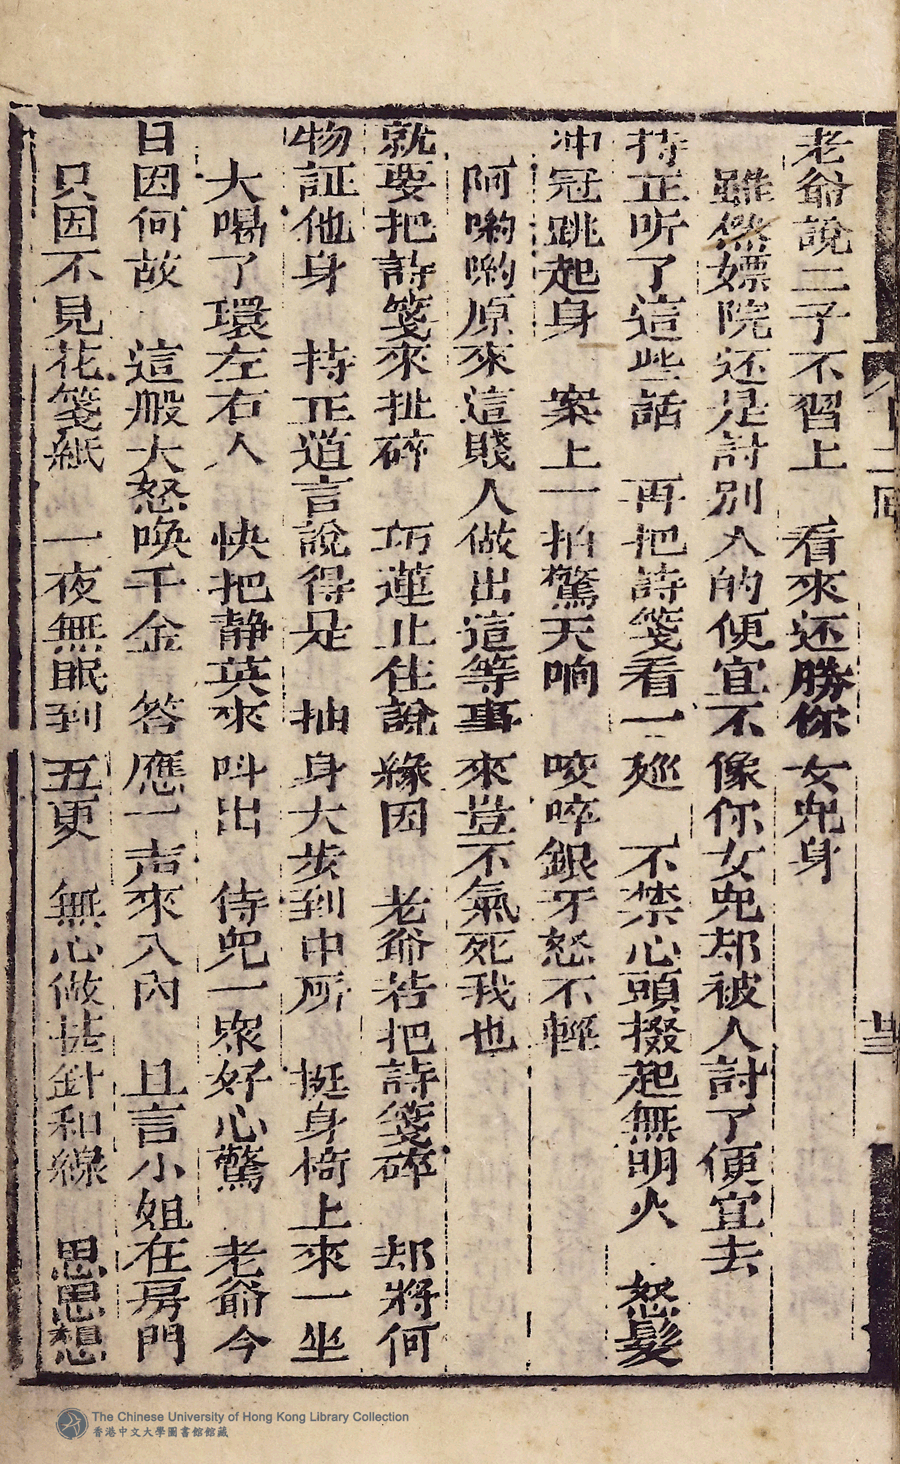 老爺說二子不習上　看來还勝你女兒身
雖然嫖院还是討別人的便宜不像你女兒却被人討了便宜去
持正听了這些話　再把詩箋看一廵　不禁心頭掇起無明火　怒髮
冲冠跳起身　案上一拍驚天响　咬啐銀牙怒不輕
阿喲喲原來這賤人做出這等事來豈不氣死我也
就要把詩箋來扯碎　巧蓮止住說緣因　老爺若把詩箋碎　却將何
物証他身　持正道言說得是　抽身大步到中所　挺身椅上來一坐
大喝了環左右人　快把静英來呌出　侍兒一衆好心驚　老爺今
日因何故　這般大怒喚千金　答應一声來入內　且言小姐在房門
只因不見花箋紙　一夜無眠到五更　無心做甚針和線　思思想
The Chinese University of Hong Kong Library Collection
香港中文大學圖書館館藏